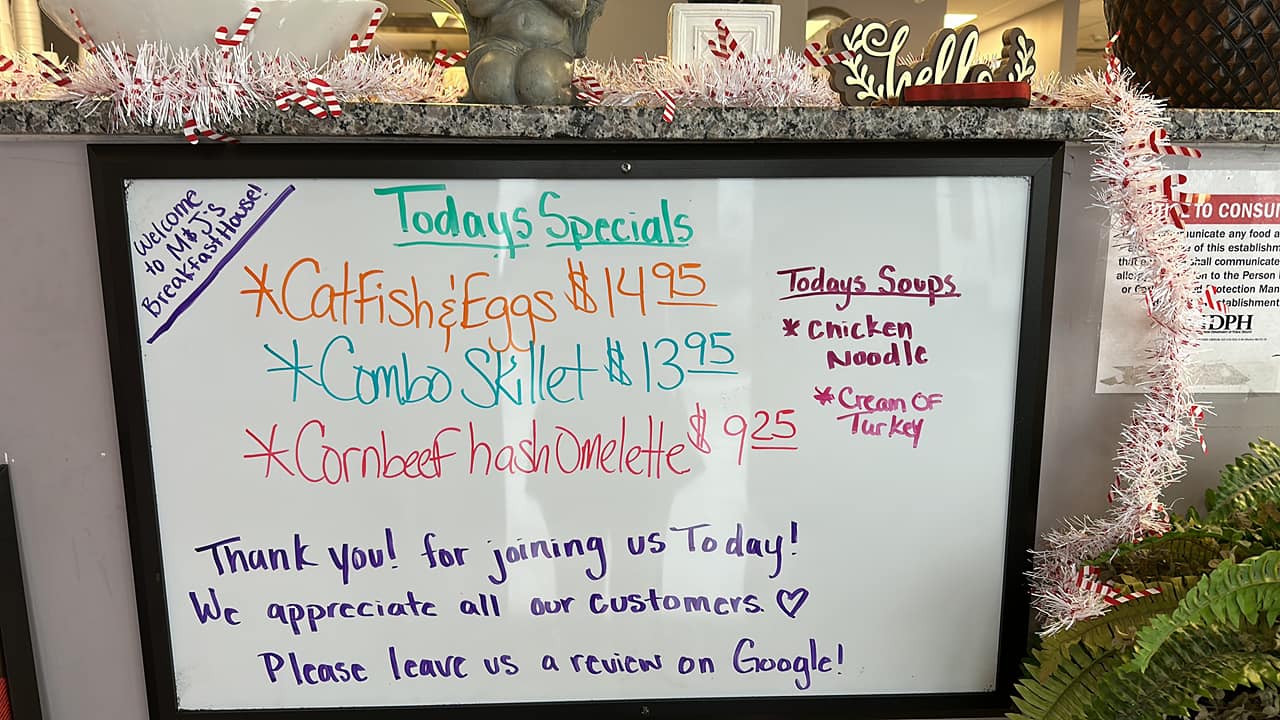 hello
Welcome
to M&J's
Breakfast House!
Todays Specials
*Catfish & Eggs $14 95
*Combo Skillet $13 95
*Cornbeef hash Omelette $9 25
Todays Soups
* Chicken
Noodle
* Cream OF
Turkey
Thank you! for joining us Today!
We appreciate all our customers. ♡
Please leave us a review on Google!
TO CONSU
unicate any food a
of this establishm
shall communicate
to the Person
otection Man
tablishment
IDPH